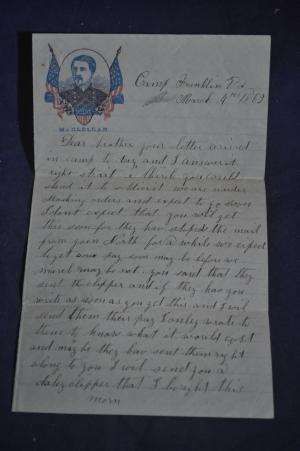 McCLELLAN.
Camp Franklin Va
March 4th 1862
Dear brother your letter arrived
in camp to day and I answer it
right strait I think you could
stand it to soldier it we are under
Marching orders and expect to go soon
I dont expect that you will get
this soon for they hav stoped the mail
from goin North for a while we expect
to get our pay soon may be before we
move may be not you said that they
sent the clipper and if they hav you
write as soon as you get this and I will
send them their pay I onley wrote to
them to know what it would cost
and may be they hav sent them right
along to you I will send you a
daley clipper that I bought this
morn